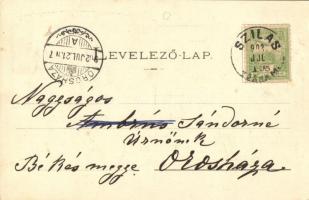 LEVELEZŐ-LAP.
SZILAS
902
JUL
OROSHÁZA
902 JUL. 21. N 7
Nagyságos
Ambrus Sándorné
Urnőnek
Békés megye Orosháza.